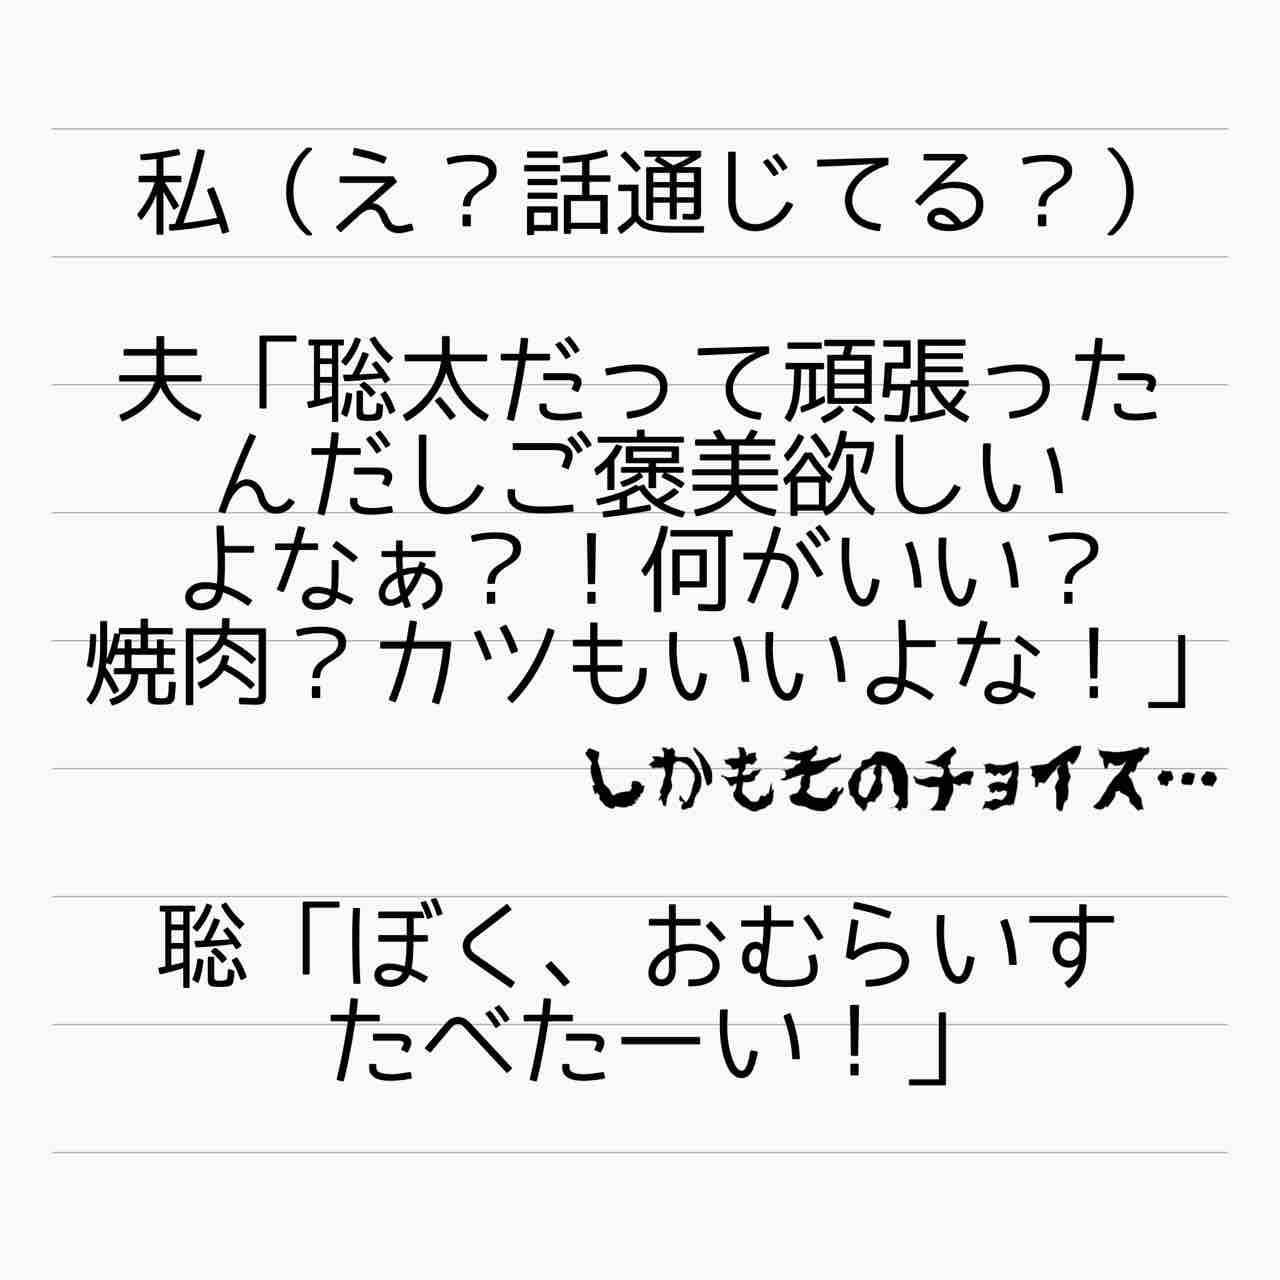 私（え？話通じてる？）
夫「聡太だって頑張った
んだしご褒美欲しい
よなぁ？！何がいい？
焼肉？カツもいいよな！」
しかもそのチョイス…
聡「ぼく、おむらいす
たべたーい！」